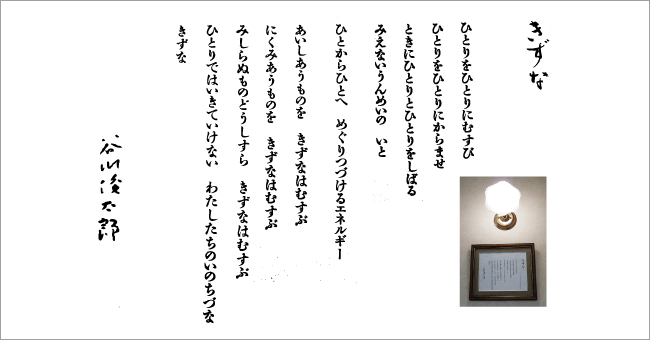 きずな
ひとりをひとりにむすび
ひとりをひとりにからませ
ときにひとりとひとりをしばる
みえないうんめいの　いと
ひとからひとへ　めぐりつづけるエネルギー
あいしあうものを　きずなはむすぶ
にくみあうものを　きずなはむすぶ
みしらぬものどうしすら　きずなはむすぶ
ひとりではいきていけない　わたしたちのいのちづな
きずな
谷川俊太郎